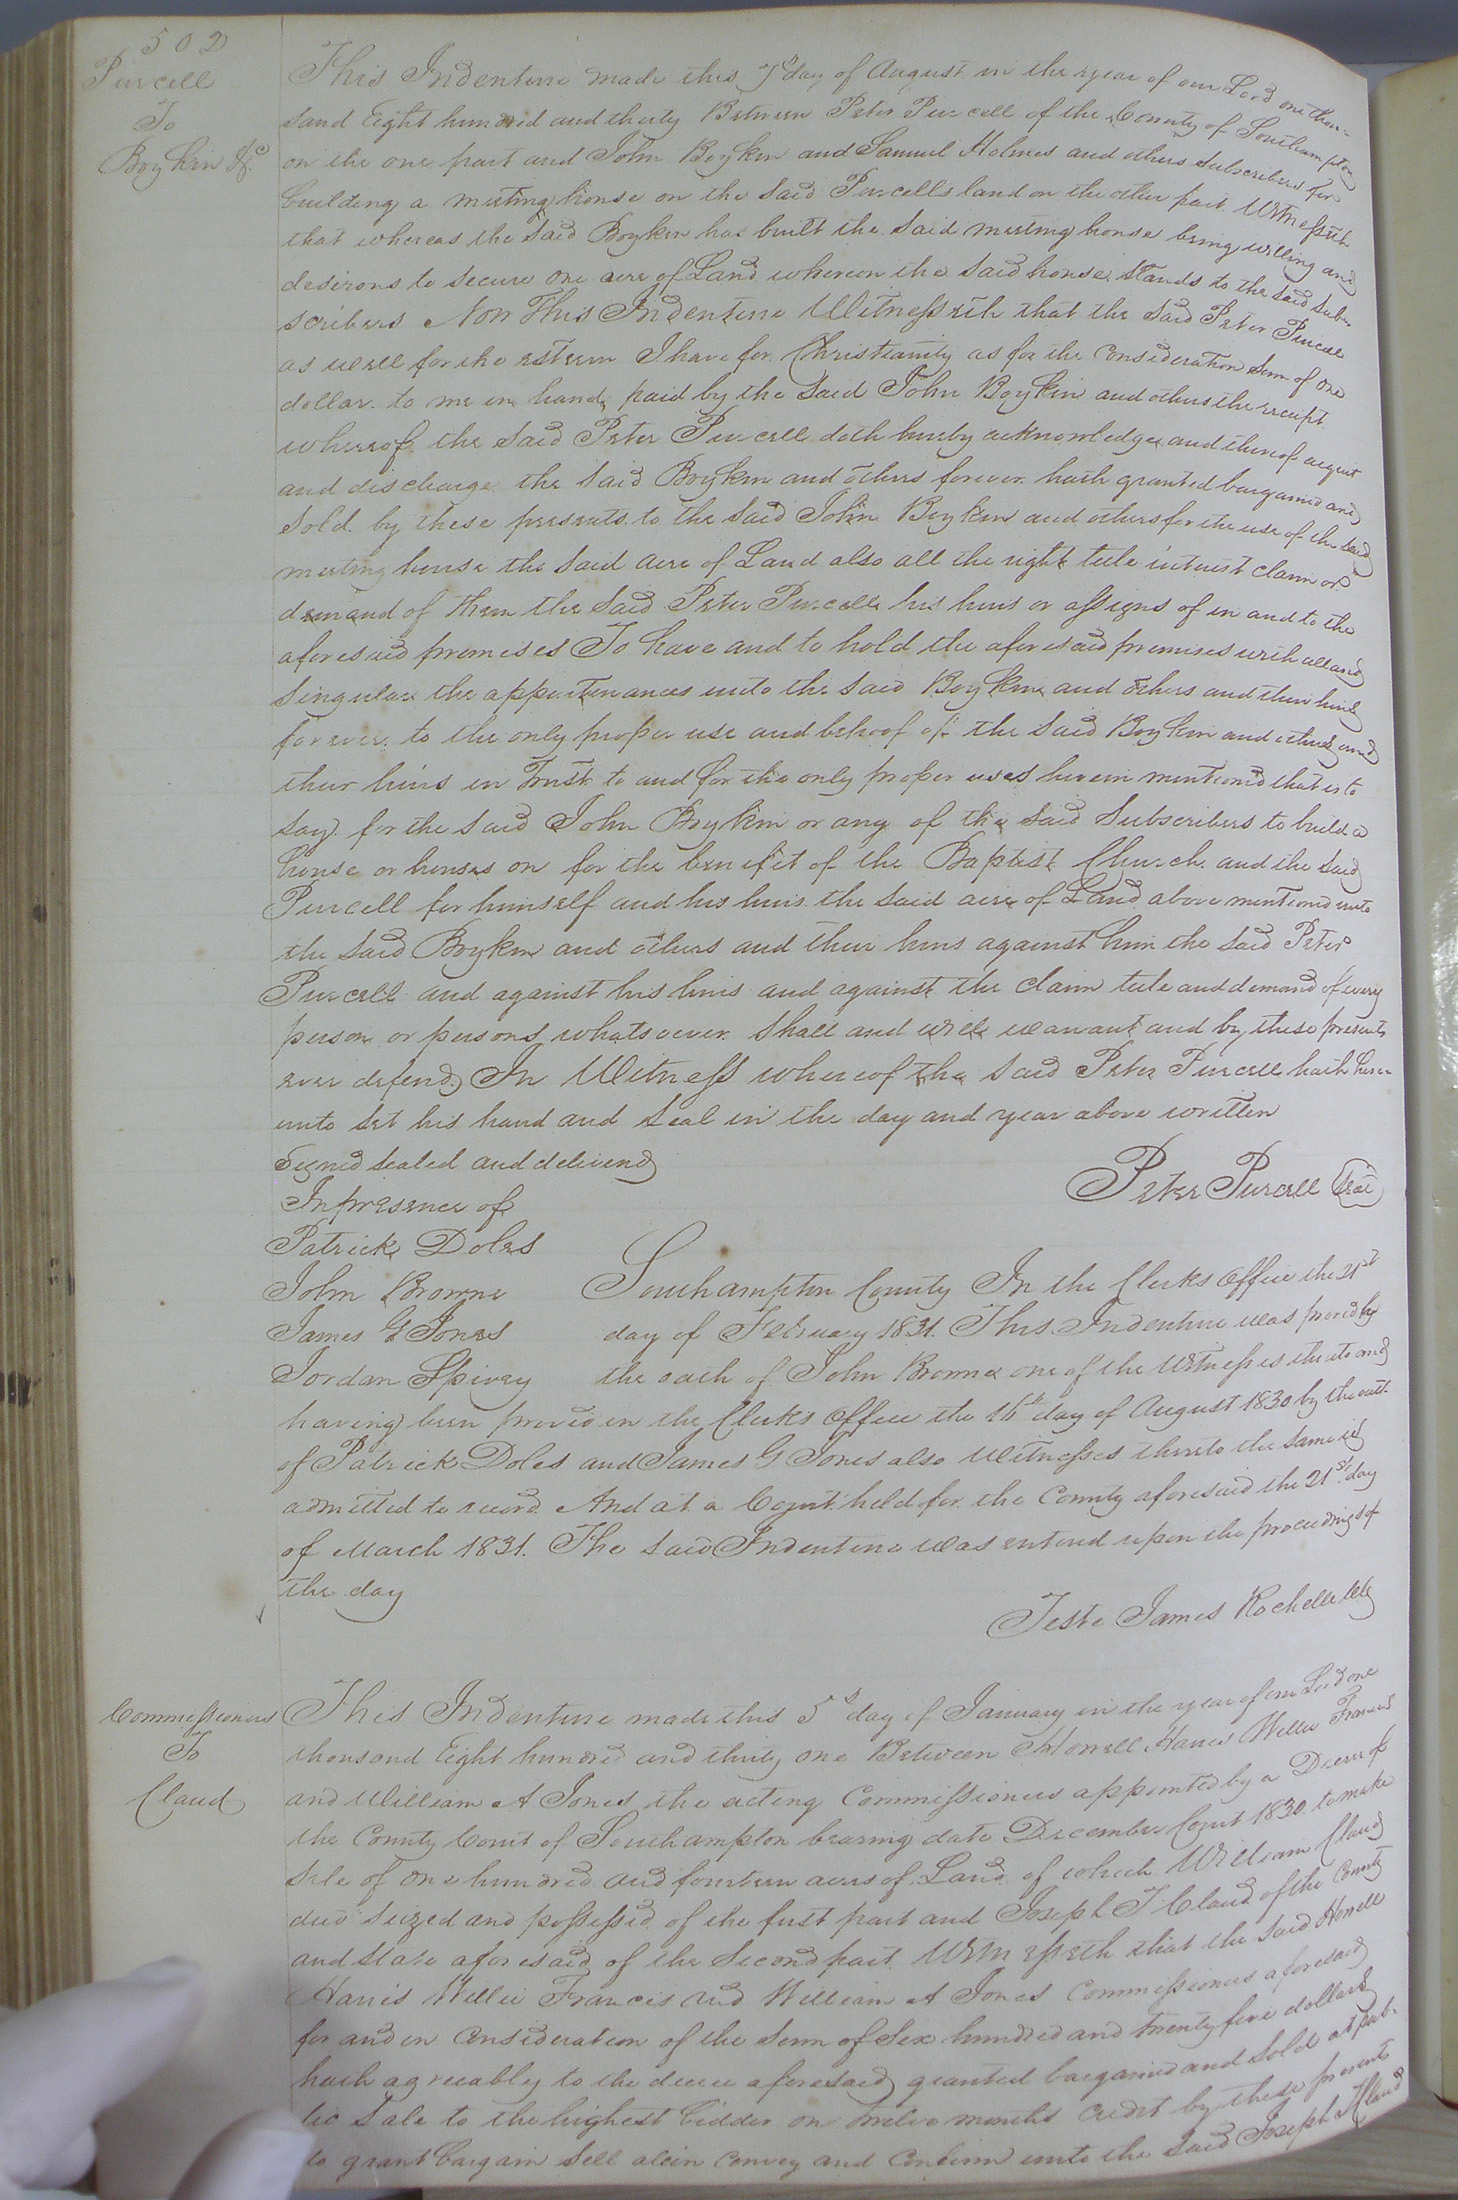 502
Purcell
To
Boykin &c
This Indenture made this 7th day of August in the year of our Lord one thou-
sand Eight hundred and thirty Between Peter Purcell of the County of Southampton
on the one part and John Boykin and Samuel Holmes and others subscribers for
building a meeting house on the said Purcells land on the other part Witnesseth
that whereas the said Boykin has built the said meeting house being willing and
desirous to secure one acre of Land whereon the said house stands to the said subs
scribers Now This Indenture Witnesseth that the said Peter Purcell
as well for the esteem I have for Christianity as for the consideration sum of one
dollar to me in hand paid by the said John Boykin and others the receipt
whereof the said Peter Purcell doth hereby acknowledge and thereof acquit
and discharge the said Boykin and others forever hath granted bargained and
sold by these presents to the said John Boykin and others for the use of the said
meeting house the said acre of Land also all the right title interest claim or
demand of them the said Peter Purcell his heirs or assigns of in and to the
aforesaid premises To have and to hold the aforesaid premises with all and
singular the appurtenances unto the said Boykin and others and their heirs
forever to the only proper use and behoof of the said Boykin and others and
their heirs in Trust to and for the only proper uses herein mentioned that is to
say for the said John Boykin or any of the said Subscribers to build a
house or houses on for the benefit of the Baptist Church and the said
Purcell for himself and his heirs the said acre of Land above mentioned unto
the said Boykin and others and their heirs against him the said Peter
Purcell and against his heirs and against the claim title and demand of every
person or persons whatsoever shall and will warrant and by these presents
ever defend In Witness whereof the said Peter Purcell hath here-
unto set his hand and seal in the day and year above written
Signed sealed and delivered
In presence of
Peter Purcell Seal
Patrick Doles
John Browne
James G Jones
Jordan Spivey
Southampton County In the Clerks Office the 21st
day of February 1831. This Indenture was proved by
the oath of John Browne one of the Witnesses thereto and
having been proved in the Clerks Office the 16th day of August 1830 by the oath
of Patrick Doles and James G Jones also Witnesses thereto the same is
admitted to record And at a Court held for the County aforesaid the 21st day
of March 1831. The said Indenture was entered upon the proceedings of
the day
Teste James Rochelle Clk
Commissioners
To
Claud
This Indenture made this 5th day of January in the year of our Lord one
thousand Eight hundred and thirty one Between Howell Harris Willie Francis
and William A Jones the acting Commissioners appointed by a Decree of
the County Court of Southampton bearing date December Court 1830 to make
Sale of one hundred and fourteen acres of Land of which William Claud
died seized and possessed of the first part and Joseph T Claud of the County
and State aforesaid of the Second part Witnesseth that the said Howell
Harris Willie Francis and William A Jones Commissioners aforesaid
for and in Consideration of the Sum of Six hundred and twenty five dollars
hath agreeably to the decree aforesaid granted bargained and Sold at pub-
lic Sale to the highest bidder on twelve months credit by these presents
do grant bargain Sell alien Convey and Confirm unto the said Joseph T Claud